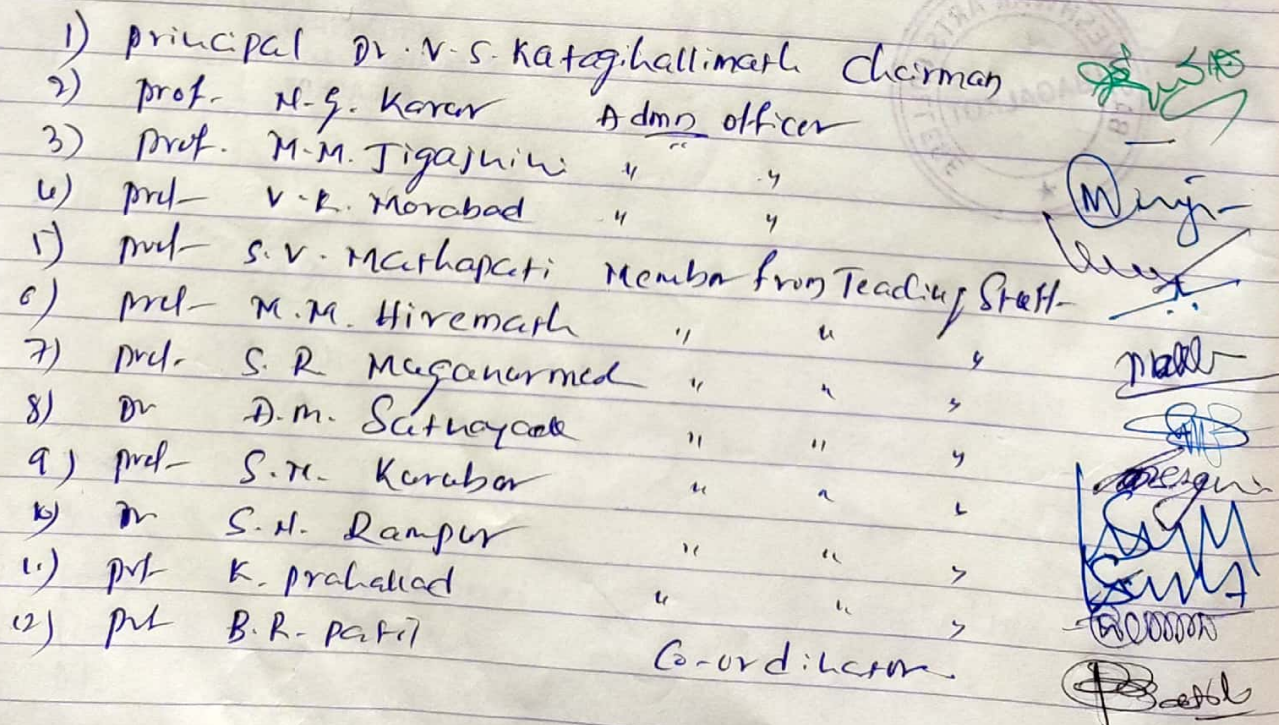 1) Principal Dr. V.S. Katagihallimath Chairman
2) Prof. N.G. Karur Admn Officer
3) Prof. M.M. Jigajnini " "
4) Prof V.R. Morabad " "
5) Prof S.V. Mathapati Member from Teaching Staff
6) Prof M.M. Hiremath " " "
7) Prof. S.R Maganurmed " " "
8) Dr D.M. " " "
9) Prof S.N. Karabar " " "
10) Dr S.H. Rampur " " "
11) Prf K. Prahallad " " "
12) Prf B.R. Patil Co-ordinator.